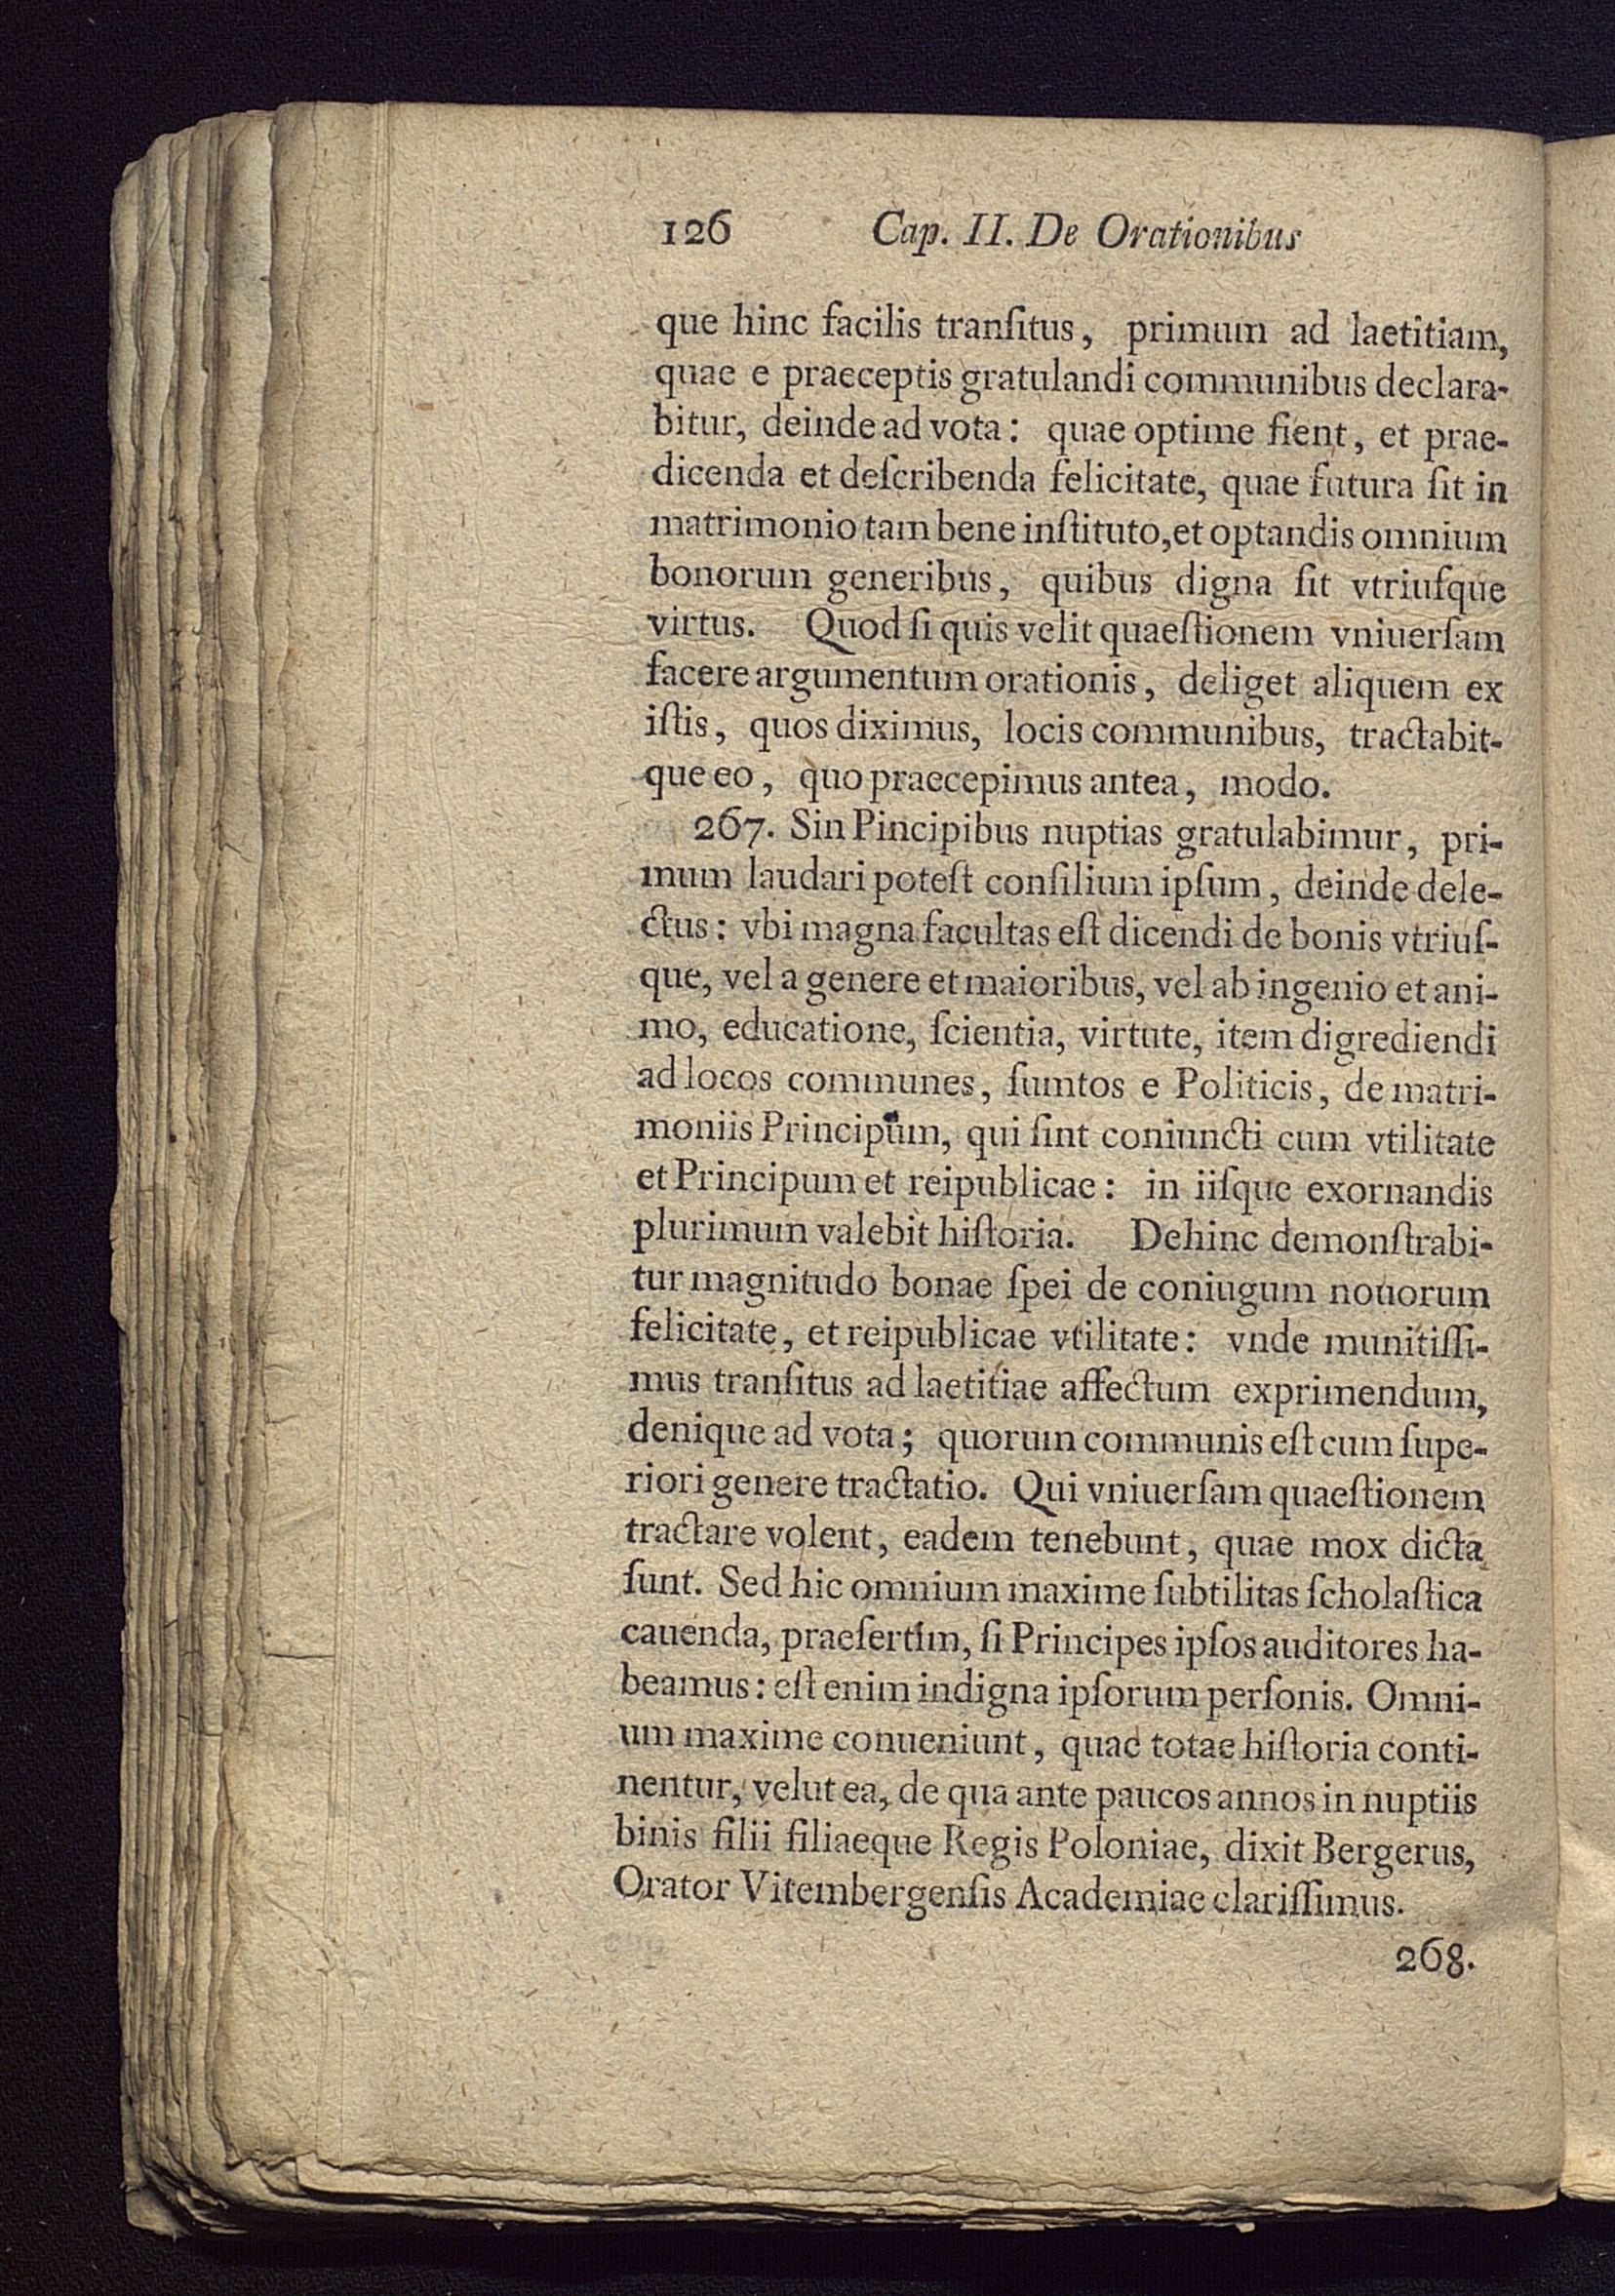 126 Cap. II. De Orationibus
que hinc facilis tranſitus, primum ad laetitiam,
quae e praeceptis gratulandi communibus declara-
bitur, deinde ad vota: quae optime fient, et prae-
dicenda et deſcribenda felicitate, quae futura ſit in
matrimonio tam bene inſtituto, et optandis omnium
bonorum generibus, quibus digna ſit vtriuſque
virtus. Quod ſi quis velit quaeſtionem vniuerſam
facere argumentum orationis, deliget aliquem ex
iſtis, quos diximus, locis communibus, tractabit-
que eo, quo praecepimus antea, modo.
267. Sin Pincipibus nuptias gratulabimur, pri-
mum laudari poteſt conſilium ipſum, deinde dele-
ctus: vbi magna facultas eſt dicendi de bonis vtriuſ-
que, vel a genere et maioribus, vel ab ingenio et ani-
mo, educatione, ſcientia, virtute, item digrediendi
ad locos communes, ſumtos e Politicis, de matri-
moniis Principum, qui ſint coniuncti cum vtilitate
et Principum et reipublicae: in iiſque exornandis
plurimum valebit hiſtoria. Dehinc demonſtrabi-
tur magnitudo bonae ſpei de coniugum nouorum
felicitate, et reipublicae vtilitate: vnde munitiſſi-
mus tranſitus ad laetitiae affectum exprimendum,
denique ad vota; quorum communis eſt cum ſupe-
riori genere tractatio. Qui vniuerſam quaeſtionem
tractare volent, eadem tenebunt, quae mox dicta
ſunt. Sed hic omnium maxime ſubtilitas ſcholaſtica
cauenda, praeſertim, ſi Principes ipſos auditores ha-
beamus: eſt enim indigna ipſorum perſonis. Omni-
um maxime conueniunt, quae totae hiſtoria conti-
nentur, velut ea, de qua ante paucos annos in nuptiis
binis filii filiaeque Regis Poloniae, dixit Bergerus,
Orator Vitembergenſis Academiae clariſſimus.
268.